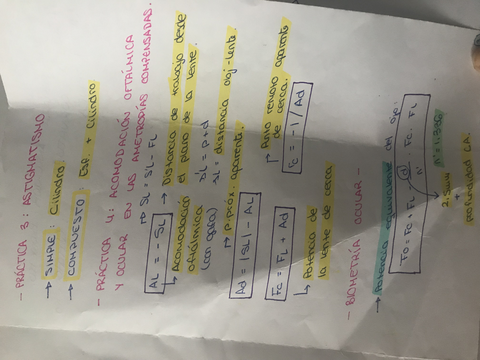 - PRÁCTICA 3: ASTIGMATISMO
→ SIMPLE: Cilindro.
→ COMPUESTO: Esf. + Cilindro
- PRÁCTICA 4: ACOMODACIÓN OFTÁLMICA
Y OCULAR EN LAS AMETROPÍAS COMPENSADAS.
→ SL = S'L - FL
AL = - SL → Distancia de trabajo desde
el plano de la lente.
Acomodación
oftálmica
(con gafa)
→ p. próx. aparente.
Ad = |SL| - AL
Fc = FL + Ad
→ Punto remoto aparente
de cerca.
Potencia de
la lente de cerca
fc = -1 / Ad
- BIOMETRÍA OCULAR -
→ Potencia equivalente del ojo:
n' = 1.336
2.5mm
+
profundidad CA.